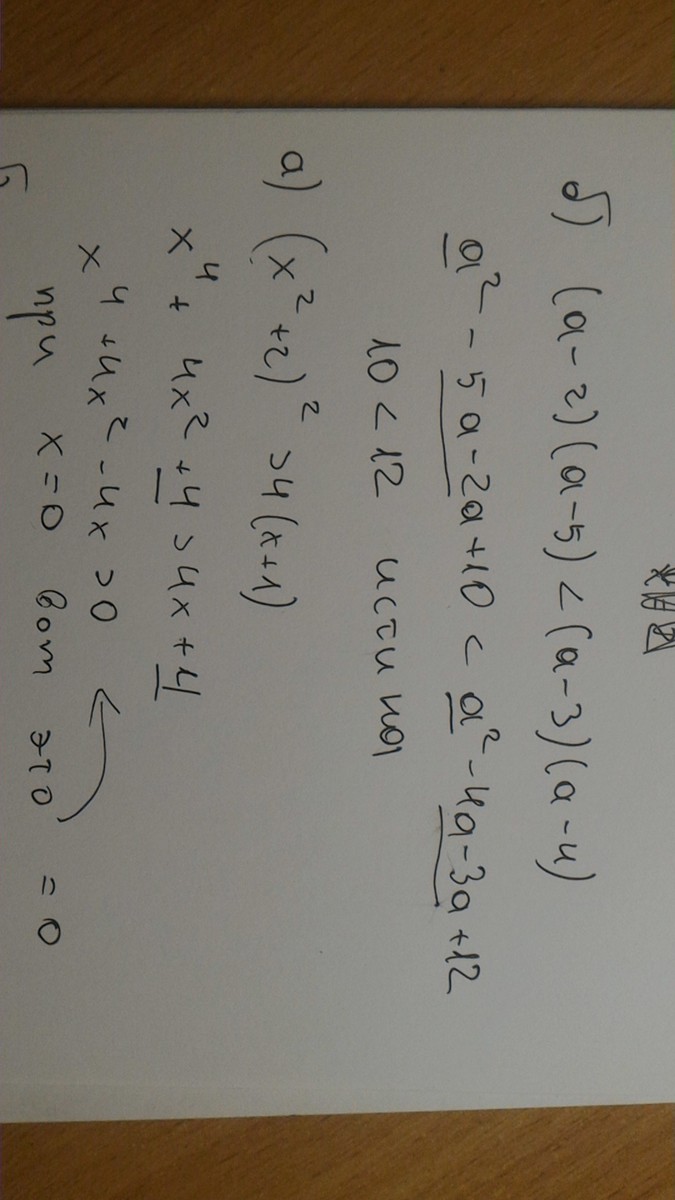 б) (a-2)(a-5) < (a-3)(a-4)
a² - 5a - 2a + 10 < a² - 4a - 3a + 12
10 < 12 истина
а) (x² + 2)² > 4(x+1)
x⁴ + 4x² + 4 > 4x + 4
x⁴ + 4x² - 4x > 0
при x = 0 вот это = 0